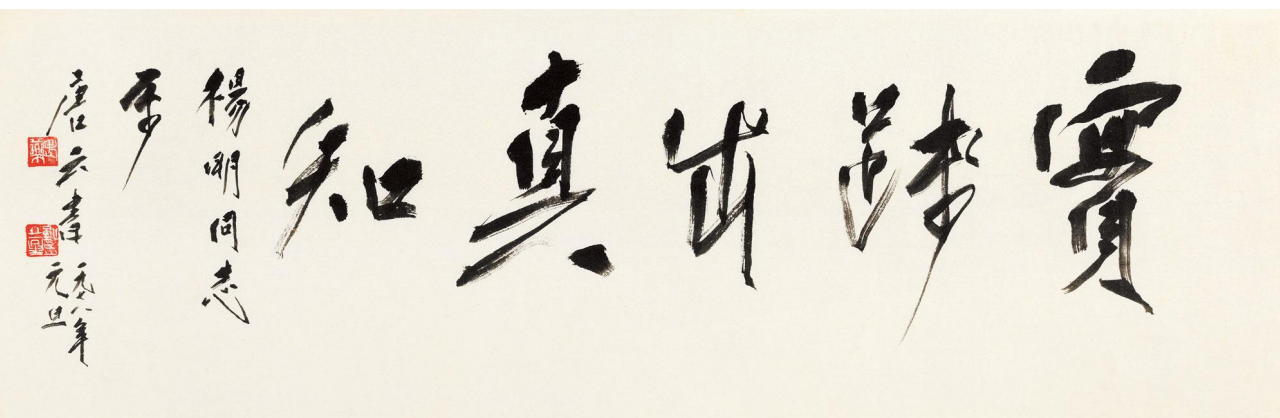 實踐出真知
楊明同志
屬
唐云書
一九七八年
元旦